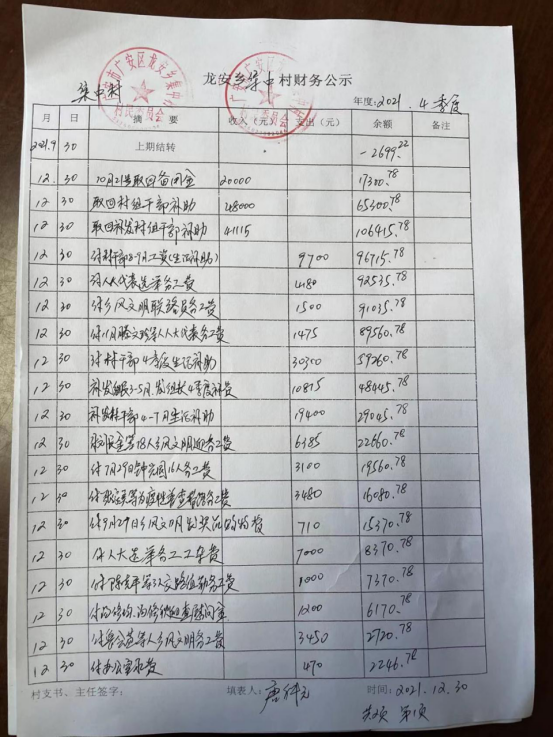 龙安乡集中村财务公示
集中村 年度:2021.4季度
月 日 摘要 收入(元) 支出(元) 余额 备注
2021.9 30 上期结转 -2699.22
12 30 10月21号取回备用金 20000 17300.78
12 30 取回村组干部补助 48000 65300.78
12 30 取回补发村组干部补助 41115 106415.78
12 30 付村干部8-9月工资(生活补助) 9700 96715.78
12 30 付人大代表选举务工费 4180 92535.78
12 30 付乡风文明联络员务工费 1500 91035.78
12 30 付11月 等人人大代表务工费 1475 89560.78
12 30 付村干部4季度生活补助 30300 59260.78
12 30 补发 3-5月. 组长4季度补费 10815 48445.78
12 30 补发村干部4-7月生活补助 19400 29045.78
12 30 等18人乡风文明 务工费 6385 22660.78
12 30 付7月29日钟 16人务工费 3100 19560.78
12 30 付 等 务工费 3480 16080.78
12 30 付9月29日乡风文明 费 710 15370.78
12 30 付人大选举务工工车费 7000 8370.78
12 30 付 等3人交路值勤务工费 1000 7370.78
12 30 付 慰问金 1200 6170.78
12 30 付 等人乡风文明务工费 3450 2720.78
12 30 付办公室 费 470 2246.78
村支书、主任签字: 填表人: 时间:2021.12.30
共2页 第1页